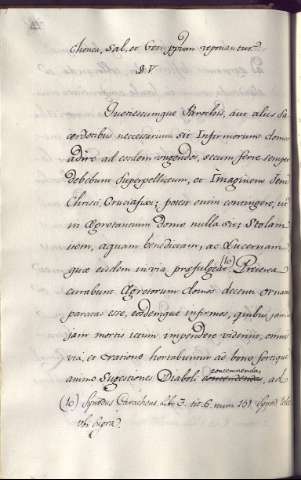 chonea, sal, et Gossypium reponantur
§. V
Quotiescumque Parochis, aut aliis Sa
cerdotibus necessarium sit Infirmorum domos
adire ad eosdem ungendos, secum ferre semper
debebunt Superpelliceum, et Imaginem Jesu
Christi Crucifixi, potest enim contingere, ut
in Aegrotantium domo nulla sit, Stolam
item, aquam benedictam, ac Lucernam
quae eisdem in via praefulgeat (10) Praeterea
curabunt Aegrotorum domos decenti ornatu
paratas esse, eosdemque infirmos, quibus jam
jam mortis tecum impendere viderint, omni
via, et Oratione hortabuntur ut bono, fortique
animo Sugestiones Diaboli contemnenda, ad
(10) Synodus Carachens. lib. 3. tit. 6. num 151.